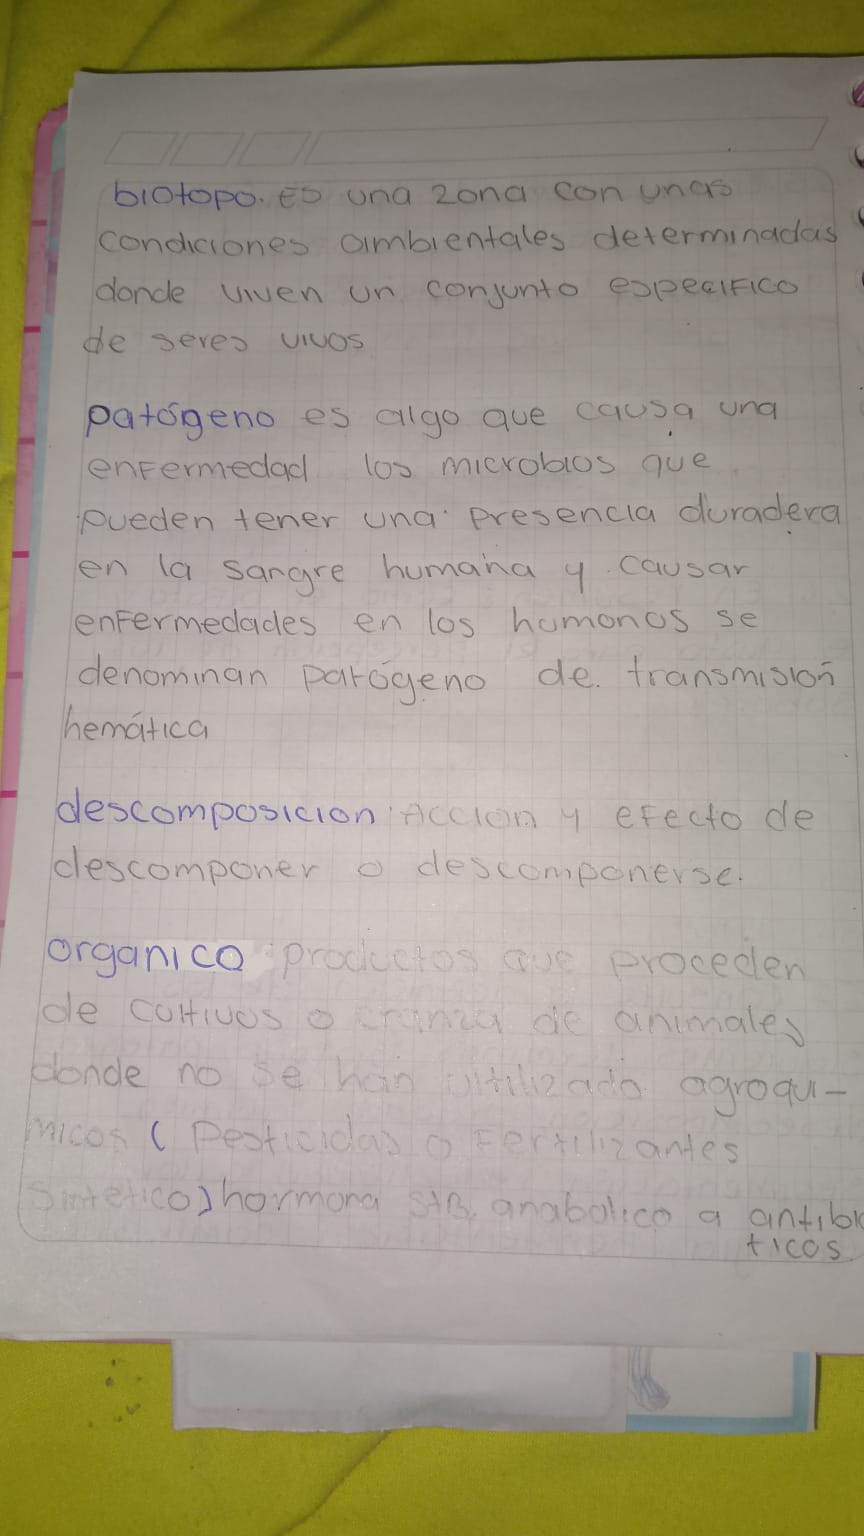 biotopo. Es una zona con unas
condiciones ambientales determinadas
donde viven un conjunto especifico
de seres vivos
patógeno es algo que causa una
enfermedad los microbios que
pueden tener una presencia duradera
en la sangre humana y causar
enfermedades en los humanos se
denominan patógeno de transmisión
hemática
descomposicion: Accion y efecto de
descomponer o descomponerse.
organico productos que proceden
de cultivos o crianza de animales
donde no se han utilizado agroqui-
micos (pesticidas o fertilizantes
sintetico) hormona anabolico a antibio
ticos